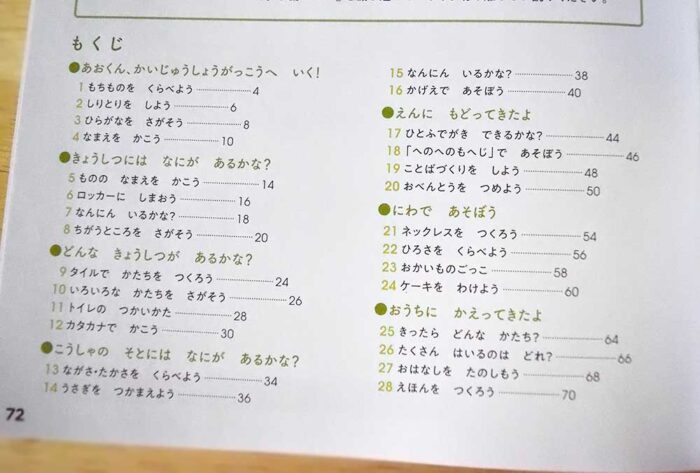 もくじ
●あおくん、かいじゅうしょうがっこうへ いく!
1 もちものを くらべよう 4
2 しりとりを しよう 6
3 ひらがなを さがそう 8
4 なまえを かこう 10
●きょうしつには なにが あるかな?
5 ものの なまえを かこう 14
6 ロッカーに しまおう 16
7 なんにん いるかな? 18
8 ちがうところを さがそう 20
●どんな きょうしつが あるかな?
9 タイルで かたちを つくろう 24
10 いろいろな かたちを さがそう 26
11 トイレの つかいかた 28
12 カタカナで かこう 30
●こうしゃの そとには なにが あるかな?
13 ながさ・たかさを くらべよう 34
14 うさぎを つかまえよう 36
15 なんにん いるかな? 38
16 かげえで あそぼう 40
●えんに もどってきたよ
17 ひとふでがき できるかな? 44
18 「へのへのもへじ」で あそぼう 46
19 ことばづくりを しよう 48
20 おべんとうを つめよう 50
●にわで あそぼう
21 ネックレスを つくろう 54
22 ひろさを くらべよう 56
23 おかいものごっこ 58
24 ケーキを わけよう 60
●おうちに かえってきたよ
25 きったら どんな かたち? 64
26 たくさん はいるのは どれ? 66
27 おはなしを たのしもう 68
28 えほんを つくろう 70
72